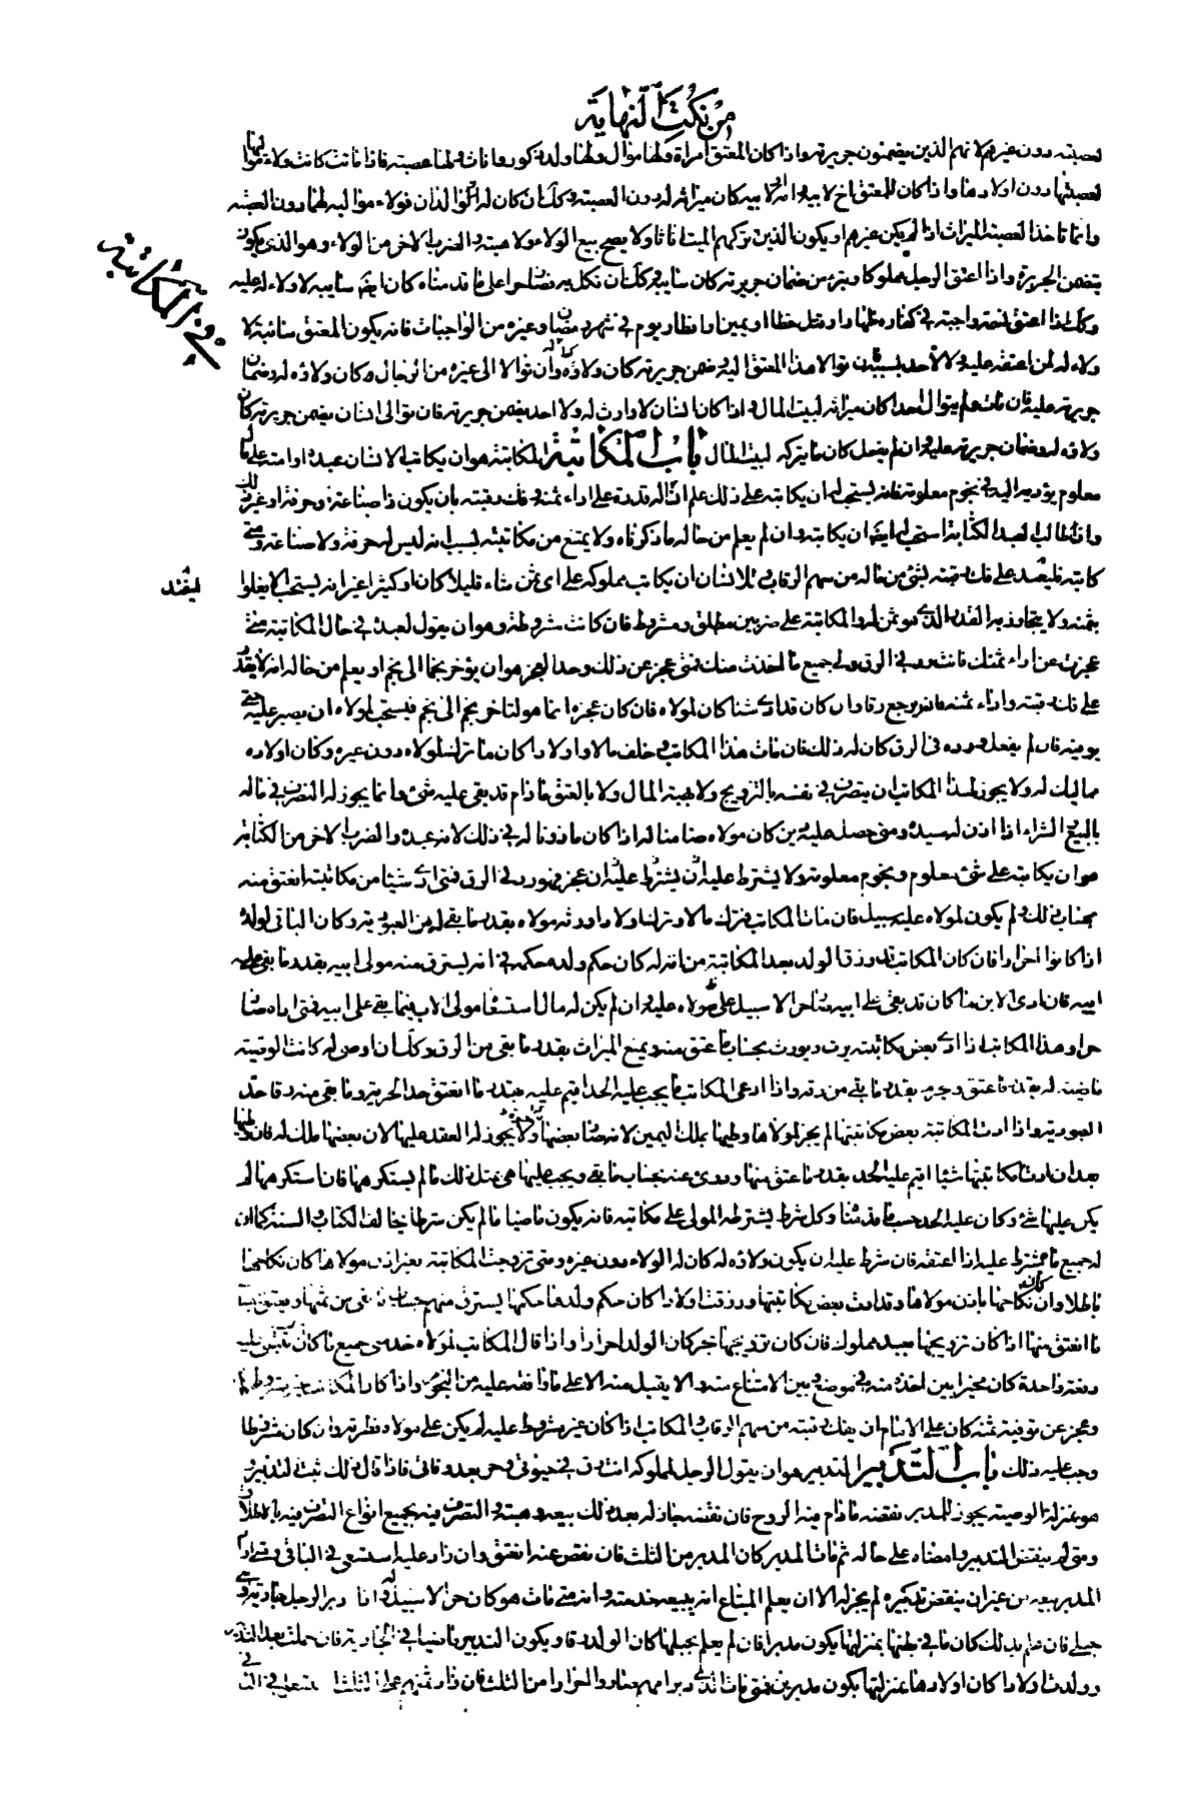 من نكت النهاية
لعصبته دون غيرهم لانهم الذين يضمنون جريرته واذا كان المعتق امراة ولها موال ولها ولد ذكور وماتت ولها عصبة فاذا ماتت كانت ولاء مواليها
لعصبتها دون اولادها واذا كان للمعتق اخ لابيه وامه واخ لابيه كان ميراثه له دون العصبة
وانما تاخذ العصبة الميراث اذا لم يكن غيرهم او يكون الذين تركهم الميت اناثا ولا يصح بيع الولاء ولا هبته والضرب الاخر من الولاء وهو الذي يكون
بتضمن الجريرة واذا اعتق الرجل مملوكا وتبرء من ضمان جريرته كان سايبة وكذلك ان نكل به فصار حرا على ما قدمناه كان ايضا سايبة لا ولاء له عليه
في المكاتبة
وكذلك اذا اعتق نسمة واجبة في كفارة ظهار او قتل خطا او يمين او افطار يوم في شهر رمضان وغيره من الواجبات فانه يكون المعتق سائبة لا
ولاء له لمن اعتقه عليه ولا لاحد بسببه فان توالا هذا المعتق اليه فضمن جريرته كان ولاؤه له وان توالا الى غيره من الرجال كان ولاؤه له وضمان
جريرته عليه فان مات ولم يتوال احدا كان ميراثه لبيت المال واذا كان انسان لا وارث له ولا احد يضمن جريرته فان توالى انسان يضمن جريرته كان
ولاؤه له وضمان جريرته عليه وان لم يفعل كان ما يتركه لبيت المال باب المكاتبة المكاتبة هو ان يكاتب الانسان عبده او امته على مال
معلوم يؤديه اليه في نجوم معلومة فانه يستحب له ان يكاتبه على ذلك علم ان له قدرة على اداء ثمنه وفك رقبته بان يكون ذا صناعة وحرفة او غير ذلك
واذا طالب العبد الكتابة استحب له ايضا ان يكاتبه وان لم يعلم من حاله ما ذكرناه ولا يمتنع من مكاتبته بسبب انه ليس له حرفة ولا صناعة ومتى
كاتبه فليقصد على فك رقبته بشئ من ماله من سهم الرقاب وللانسان ان يكاتب مملوكه على اي ثمن شاء قليلا كان او كثيرا غير انه يستحب الا يغلوا
بثمنه ولا يتجاوز به القدر الذي هو ثمن له والمكاتبة على ضربين مطلق ومشروط فان كانت مشروطة وهو ان يقول لعبده في حال المكاتبة متى
عجزت عن اداء ثمنك فانت رد في الرق ولي جميع ما اخذت منك فمتى عجز عن ذلك وحد العجز هو ان يؤخر نجما الى نجم او يعلم من حاله انه لا يقدر
على فك رقبته واداء ثمنه فانه يرجع رقا وان كان قد ادى شيئا كان لمولاه فان كان عجزه انما هو لتاخر نجم الى نجم فيستحب لمولاه ان يصبر عليه حتى
يوفيه فان لم يفعل ورده في الرق كان له ذلك فان مات هذا المكاتب وخلف مالا واولادا كان ما ترك لمولاه دون غيره وكان اولاده
مماليك له ولا يجوز لهذا المكاتب ان يتصرف في نفسه بالتزويج ولا بهبة المال ولا بالعتق ما دام قد بقي عليه شئ وانما يجوز له التصرف في ماله
بالبيع والشراء اذا اذن له سيده ومتى حصل عليه دين كان مولاه ضامنا له اذا كان ماذونا له في ذلك لانه عبده والضرب الاخر من الكتابة
هو ان يكاتبه على شئ معلوم ونجوم معلومة ولا يشترط عليه ان عجز فهو رد في الرق فمتى ادى شيئا من مكاتبته انعتق منه
بحساب ذلك ولم يكون لمولاه عليه سبيل فان مات المكاتب وترك مالا وترك اولادا ورثه مولاه بقدر ما بقي له من العبودية وكان الباقي لولده
اذا كانوا احرارا فان كان المكاتب قد رزق الولد بعد المكاتبة من امة له كان حكم ولده حكمه في انه يسترق منه مولى ابيه بقدر ما بقي على
ابيه فان ادى الابن ما كان قد بقي على ابيه صار حرا لا سبيل على مولاه عليه وان لم يكن له مال استسعاه مولى الاب فيما بقي على ابيه فمتى اداه صار
حرا وهذا المكاتب اذا ادى بعض مكاتبته يرث ويورث بحساب ما عتق منه ويمنع الميراث بقدر ما بقي من الرق وكذلك ان اوصي له كانت الوصية
ماضية له بقدر ما عتق وحرم بقدر ما بقي من رقه واذا ادعى المكاتب ما يجب عليه الحد اقيم عليه بقدر ما انعتق حد الحرية وما بقي منه رقا حد
العبودية واذا ادت المكاتبة بعض مكاتبتها لم يجز لمولاها وطيها بملك اليمين لانه صار بعضها ولا يجوز له العقد عليها لان بعضها ملك له فان وطيها
بعد ان ادت مكاتبتها شيئا اقيم عليه الحد بقدر ما عتق منها ودرئ عنه بحساب ما بقي ويجب عليها هي مثل ذلك ما لم يستكرهها فان استكرهها لم
يكن عليها شئ وكان عليه الحد حسب ما قدمناه وكل شرط يشترطه المولى على مكاتبه فانه يكون ماضيا ما لم يكن شرطا يخالف الكتاب والسنة كما ان
له جميع ما يشترط عليه اذا اعتقه فان شرط عليه ان يكون ولاؤه له كان له الولاء دون غيره ومتى تزوجت المكاتبة بغير اذن مولاها كان نكاحها
باطلا وان كان نكاحها باذن مولاها وقد ادت بعض مكاتبتها ورزقت اولادا كان حكم ولدها حكمها يسترق منهم بحساب ما بقي من ثمنها ويعتق بحساب
ما انعتق منها اذا كان تزويجها بعبد مملوك فان كان تزويجها بحر كان الولد احرارا واذا قال المكاتب لمولاه خذ مني جميع ما كاتبتني عليه
دفعة واحدة كان مخيرا بين اخذه منه في موضع وبين الامتناع منه ولا يقبل منه الا على ما وافقه عليه من النجوم واذا كان المكاتب غير مشروط عليه
وعجز عن توفية ثمنه كان على الامام ان يفك رقبته من سهم الرقاب والمكاتب اذا كان غير مشروط عليه لم يكن على مولاه فطرته وان كان مشروطا
وجب عليه ذلك باب التدبير التدبير هو ان يقول الرجل لمملوكه انت رق في حيوتي وحر بعد وفاتي فاذا قال ذلك ثبت له التدبير وهو
هو بمنزلة الوصية يجوز للمدبر نقضه ما دام فيه الروح فان نقضه جاز له بعد ذلك بيعه وهبته والتصرف فيه بجميع انواع التصرف فيه بالاطلاق
ومتى لم ينقض التدبير وامضاه على حاله ثم مات المدبر كان المدبر من الثلث فان نقص عنه انعتق وان زاد عليه استسعى في الباقي ومتى اراد
المدبر بيعه من غير ان ينقض تدبيره لم يجز له الا ان يعلم المبتاع انه يبيعه خدمته وانه متى مات هو كان حرا لا سبيل له واذا دبر الرجل جاريته وهي
حبلى فان علم بذلك كان ما في بطنها بمنزلتها يكون مدبرا فان لم يعلم بحبلها كان الولد رقا ويكون التدبير ماضيا في الجارية فان حملت بعد التدبير
وولدت اولادا كان اولادها بمنزلتها يكون مدبرين فمتى مات الذي دبر امهم صاروا احرارا من الثلث فان زاد ثمنهم على الثلث استسعى في الباقي